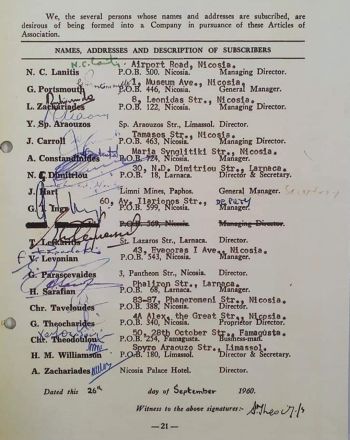 We, the several persons whose names and addresses are subscribed, are
desirous of being formed into a Company in pursuance of these Articles of
Association.
NAMES, ADDRESSES AND DESCRIPTION OF SUBSCRIBERS
Airport Road, Nicosia.
N. C. Lanitis P.O.B. 500, Nicosia. Managing Director.
1, Museum Ave., Nicosia.
G. Portsmouth P.O.B. 446, Nicosia. General Manager.
8, Leonidas Str., Nicosia.
L. Zachariades P.O.B. 122, Nicosia. Managing Director.
Y. Sp. Araouzos Sp. Araouzos Str., Limassol. Director.
Tamasos Str., Nicosia.
J. Carroll P.O.B. 463, Nicosia. Managing Director.
Maria Synglitiki Str., Nicosia.
A. Constandinides P.O.B. 724, Nicosia. Manager.
30, N.D. Dimitriou Str., Larnaca.
N. C. Dimitriou P.O.B. 18, Larnaca. Director & Secretary.
J. Hart Limni Mines, Paphos. General Manager.
60, Av. Ilarionos Str.,
P.O.B. 599, Nicosia. Manager.
P.O.B. 569, Nicosia. Managing Director.
T. Lefkaritis St. Lazaros Str., Larnaca. Director.
43, Evagoras I Ave., Nicosia.
V. Levonian P.O.B. 543, Nicosia. Manager.
G. Parascevaides 3, Pantheon Str., Nicosia. Director.
Phaliron Str., Larnaca.
H. Sarafian P.O.B. 68, Larnaca. Manager.
83-87, Phaneromeni Str., Nicosia.
Chr. Taveloudes P.O.B. 388, Nicosia. Director.
4A Alex. the Great Str., Nicosia.
G. Theocharides P.O.B. 340, Nicosia. Proprietor Director.
50, 28th October Str., Famagusta.
Chr. Theodoulou P.O.B. 254, Famagusta. Business-man.
Spyro Araouzo Str., Limassol.
H. M. Williamson P.O.B. 180, Limassol. Director & Secretary.
A. Zachariades Nicosia Palace Hotel. Director.
Dated this 26th day of September 1960.
Witness to the above signatures:-
—21—